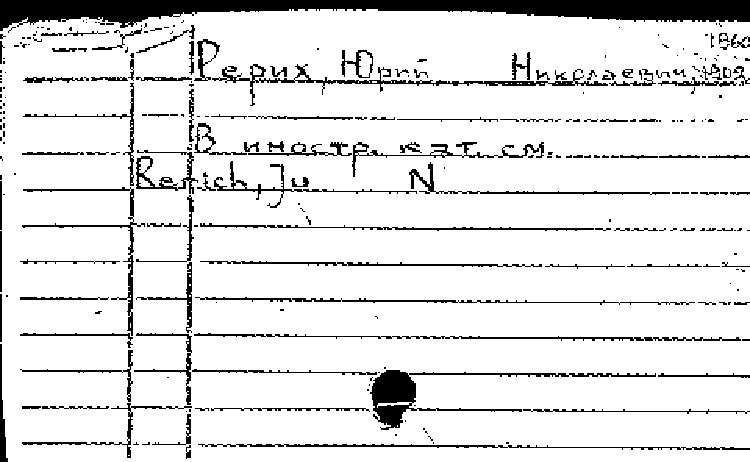 1960
Рерих, Юрий Николаевич, 1902
В иностр. кат. см.
Rerich, Ju N